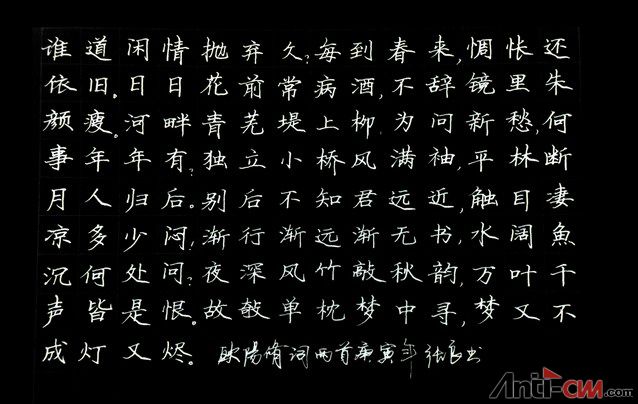 谁道闲情抛弃久?每到春来,惆怅还
依旧。日日花前常病酒,不辞镜里朱
颜瘦。河畔青芜堤上柳,为问新愁,何
事年年有?独立小桥风满袖,平林断
月人归后。别后不知君远近,触目凄
凉多少闷,渐行渐远渐无书,水阔魚
沉何处问?夜深风竹敲秋韵,万叶千
声皆是恨。故敧单枕梦中寻,梦又不
成灯又烬。欧陽脩词两首庚寅年张良书
Anti-CNN.com